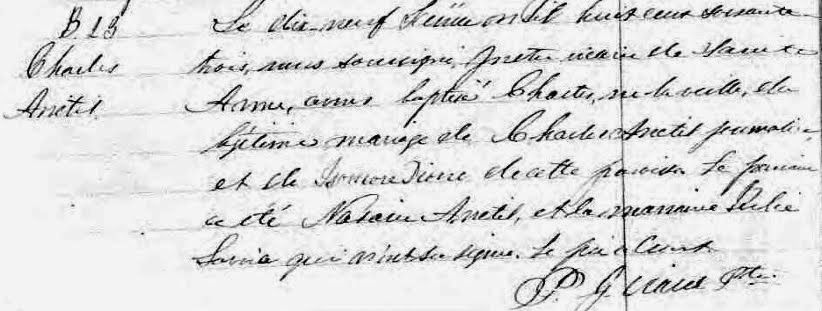 B 19 Le dix-neuf Février mil huit cent soixante
Charles trois, nous soussigné Prêtre vicaire de Sainte
Anctil Anne, avons baptisé Charles, né la veille, du
légitime mariage de Charles Anctil journalier
et de Dionne de cette paroisse Le parrain
a été Nazaire Anctil, et la marraine
qui n'ont su signer. Le père absent
P. G. Ptre